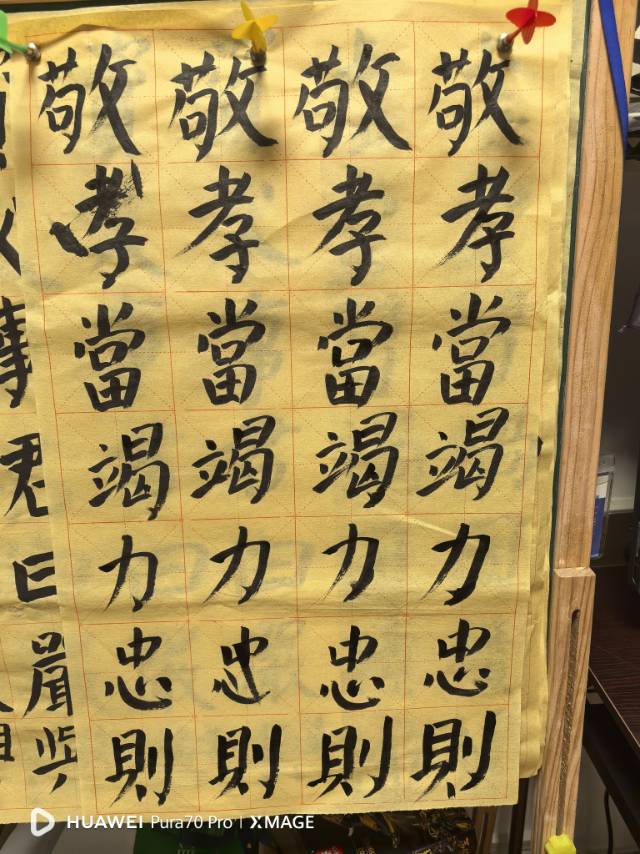 敬孝當竭力忠則
敬孝當竭力忠則
敬孝當竭力忠則
敬孝當竭力忠則
君曰
HUAWEI Pura70 Pro | XMAGE